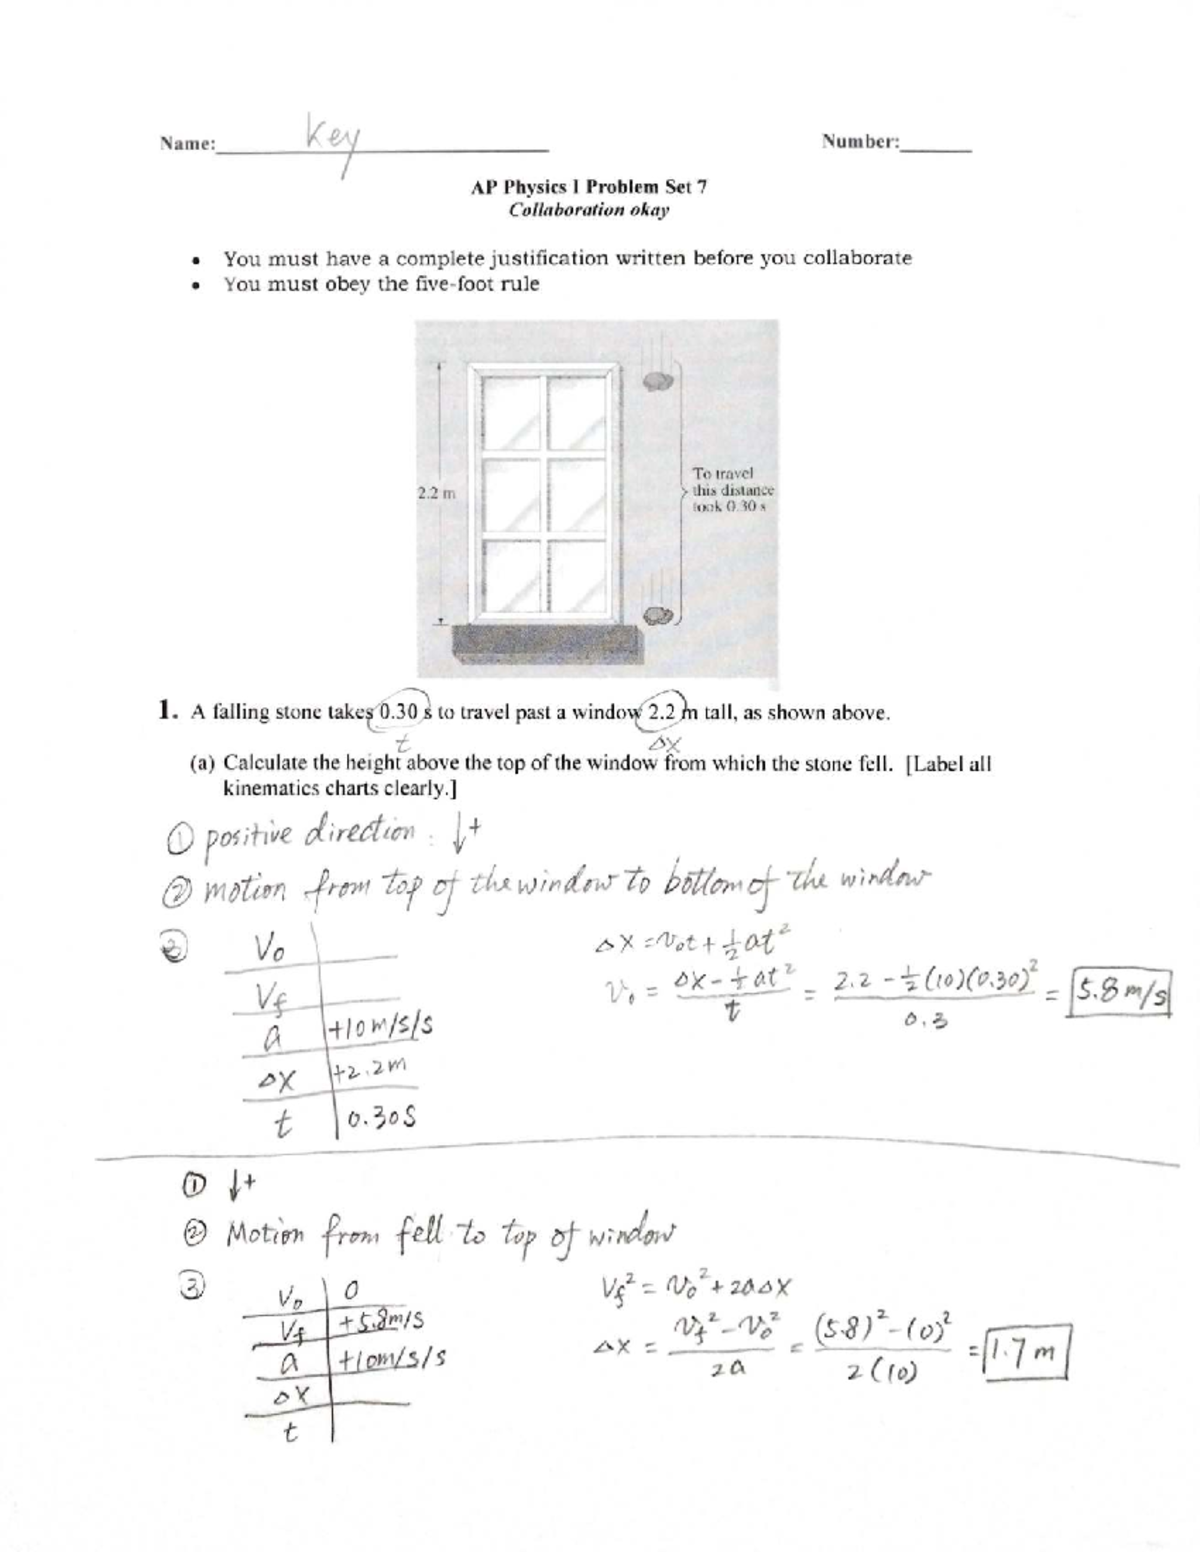 Name: Key Number:
AP Physics 1 Problem Set 7
Collaboration okay
• You must have a complete justification written before you collaborate
• You must obey the five-foot rule
2.2 m
To travel
this distance
took 0.30 s
1. A falling stone takes 0.30 s to travel past a window 2.2 m tall, as shown above.
t Δx
(a) Calculate the height above the top of the window from which the stone fell. [Label all
kinematics charts clearly.]
① positive direction: ↓+
② motion from top of the window to bottom of the window
③ V₀
Vf
a +10 m/s/s
Δx +2.2m
t 0.30s
Δx = V₀t + ½at²
V₀ = (Δx - ½at²)/t = (2.2 - ½(10)(0.30)²)/0.3 = 5.8 m/s
① ↓+
② Motion from fell to top of window
③ V₀ 0
Vf +5.8m/s
a +10m/s/s
Δx
t
Vf² = V₀² + 2aΔx
Δx = (Vf² - V₀²)/2a = ((5.8)² - (0)²)/2(10) = 1.7 m